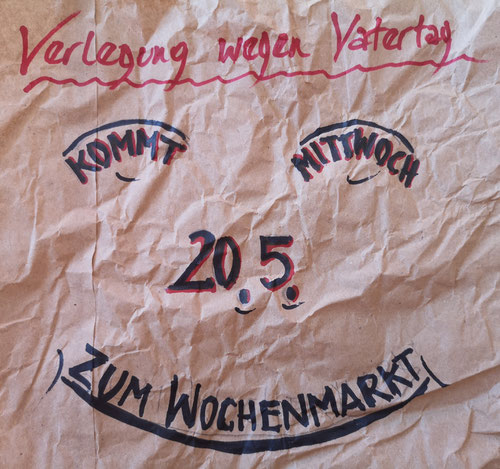 Verlegung wegen Vatertag
KOMMT MITTWOCH
20.5.
ZUM WOCHENMARKT